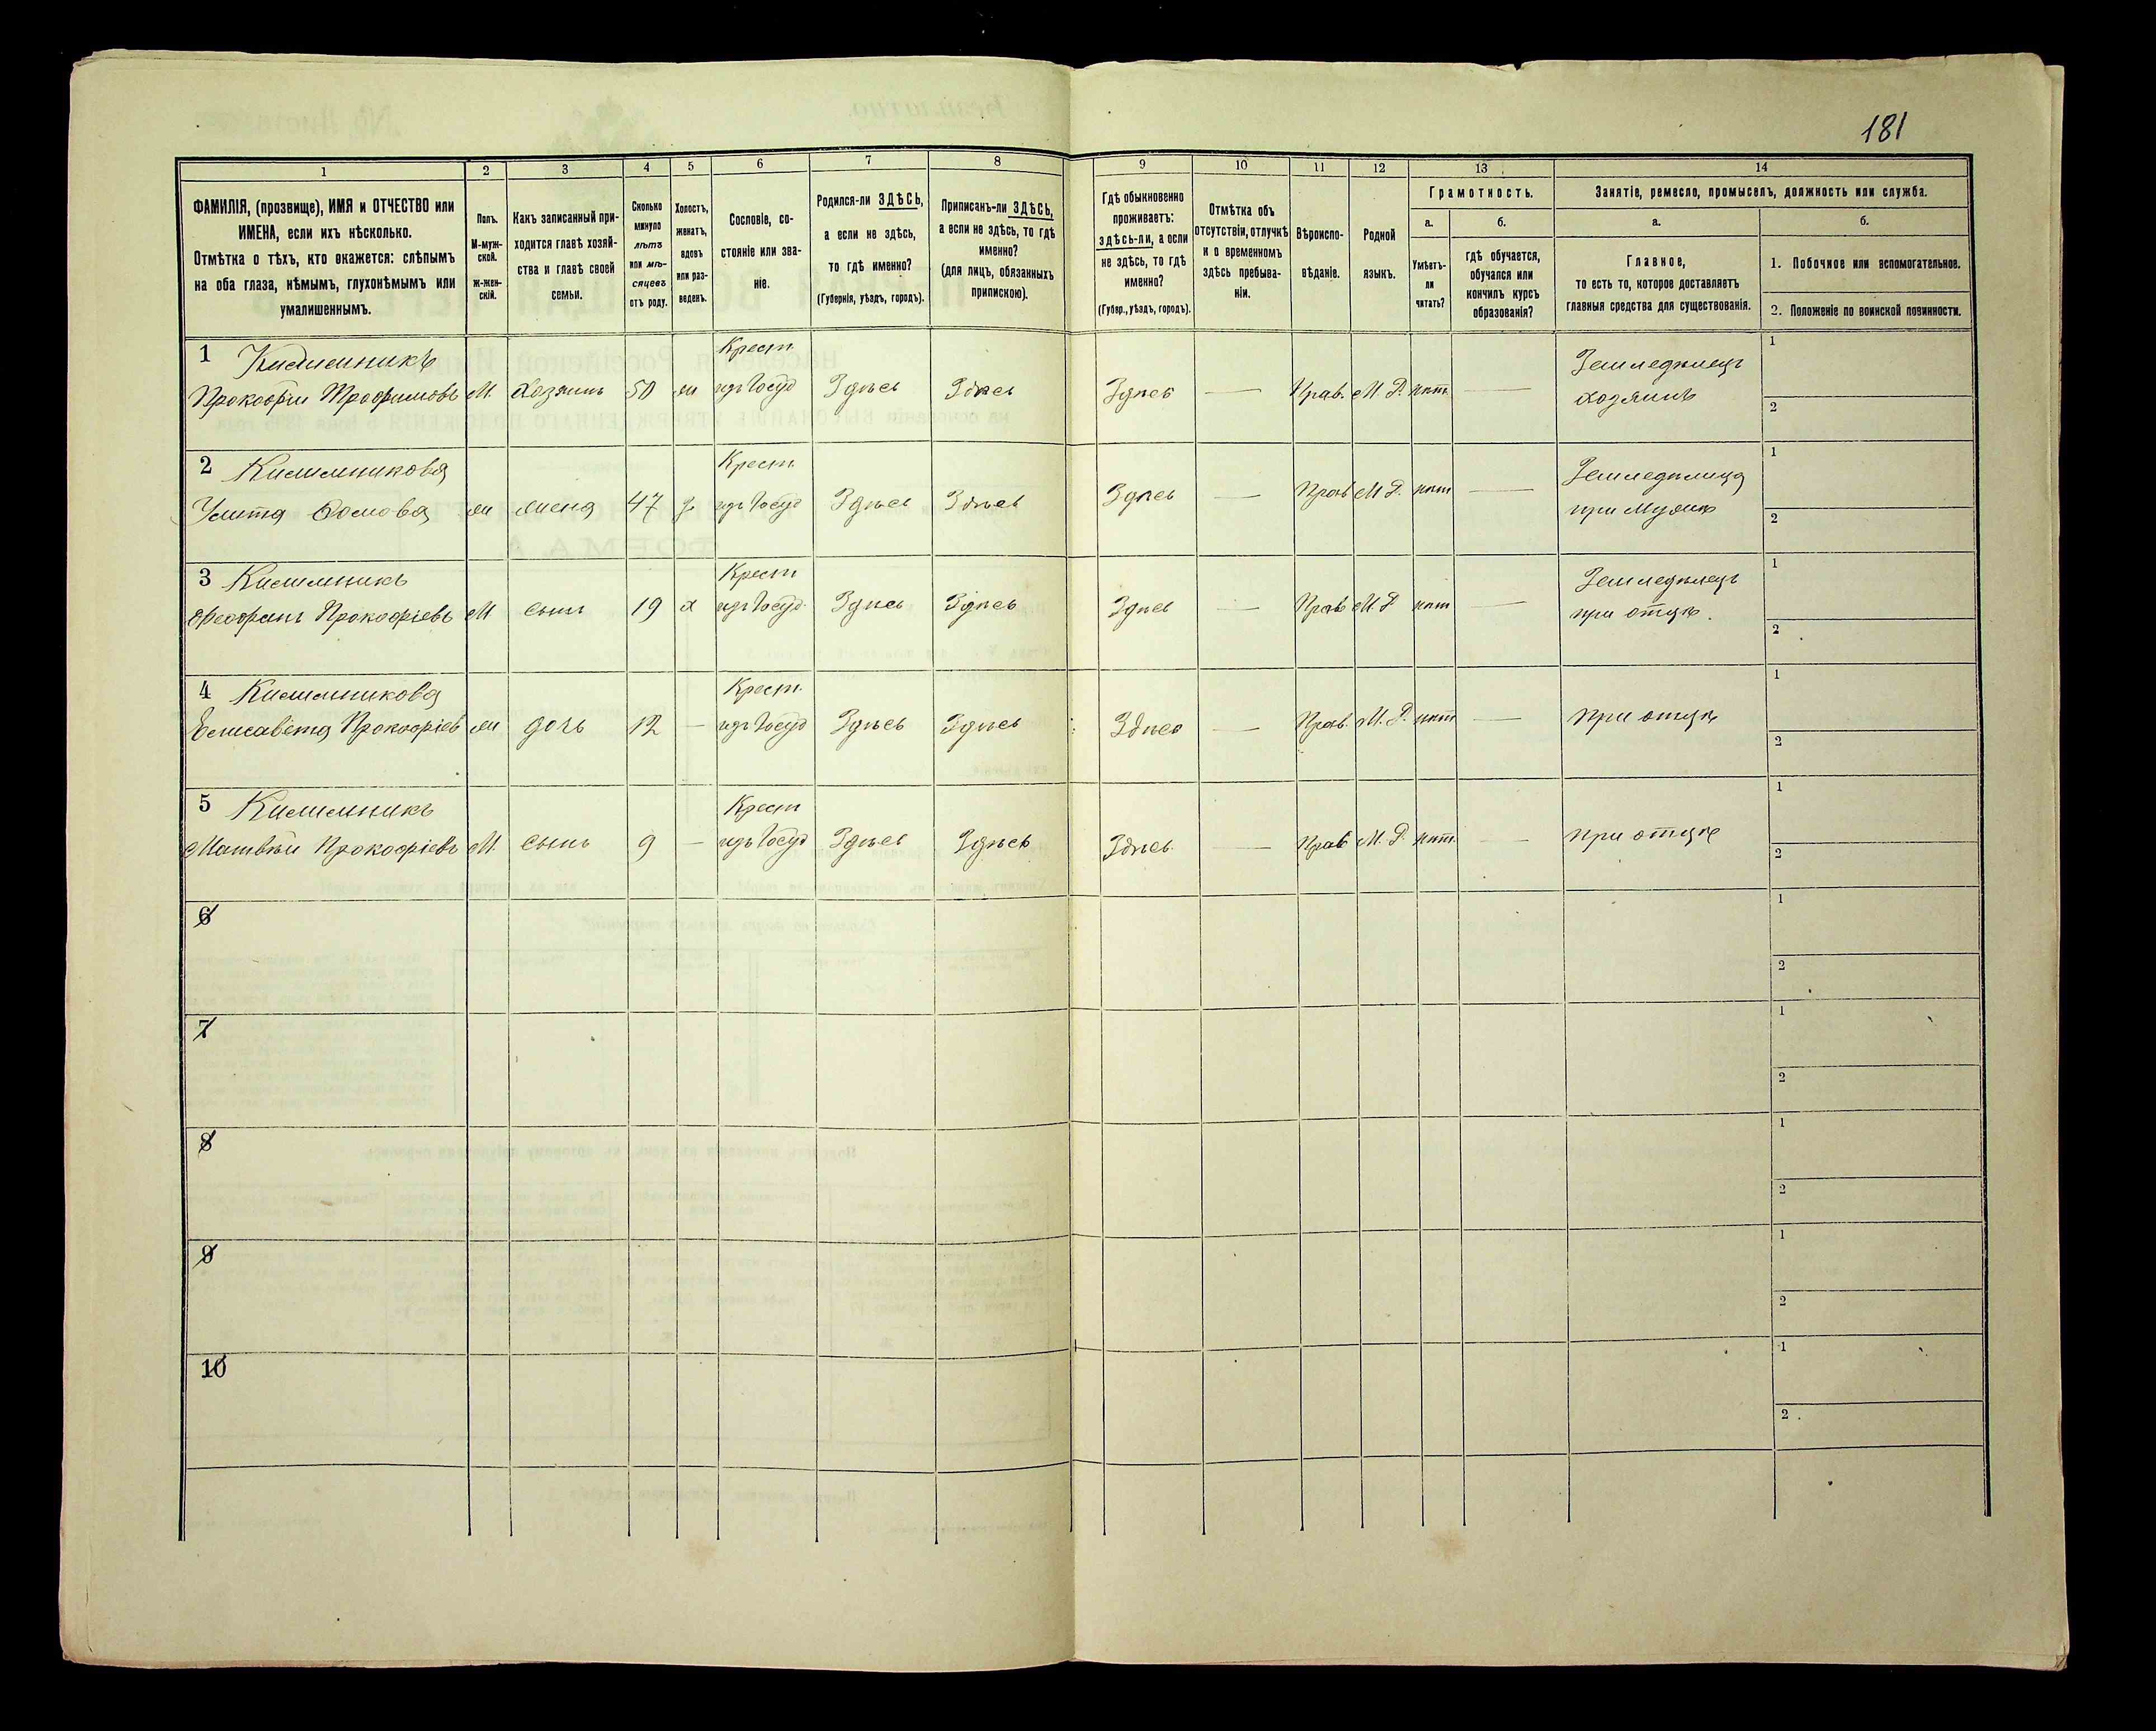 181
1 2 3 4 5 6 7 8 9 10 11 12 13 14
ФАМИЛІЯ, (прозвище), ИМЯ и ОТЧЕСТВО или
ИМЕНА, если ихъ нѣсколько.
Отмѣтка о тѣхъ, кто окажется: слѣпымъ
на оба глаза, нѣмымъ, глухонѣмымъ или
умалишеннымъ.
Полъ.
М-муж-
ской.
ж-жен-
скій.
Какъ записанный при-
ходится главѣ хозяй-
ства и главѣ своей
семьи.
Сколько
минуло
лѣтъ
или мѣ-
сяцевъ
отъ роду.
Холостъ,
женатъ,
вдовъ
или раз-
веденъ.
Сословіе, со-
стояніе или зва-
ніе.
Родился-ли ЗДѢСЬ,
а если не здѣсь,
то гдѣ именно?
(Губернія, уѣздъ, городъ).
Приписанъ-ли ЗДѢСЬ,
а если не здѣсь, то гдѣ
именно?
(для лицъ, обязанныхъ
припискою).
Гдѣ обыкновенно
проживаетъ:
здѣсь-ли, а если
не здѣсь, то гдѣ
именно?
(Губер., уѣздъ, городъ).
Отмѣтка объ
отсутствіи, отлучкѣ
и о временномъ
здѣсь пребыва-
ніи.
Вѣроиспо-
вѣданіе.
Родной
языкъ.
Грамотность.
а.
Умѣетъ-
ли
читать?
б.
гдѣ обучается,
обучался или
кончилъ курсъ
образованія?
Занятіе, ремесло, промыселъ, должность или служба.
а.
Главное,
то есть то, которое доставляетъ
главныя средства для существованія.
б.
1. Побочное или вспомогательное.
2. Положеніе по воинской повинности.
1 Крест. Земледѣлецъ 1
Прокофій Трофимовъ М. Хозяинъ 50 ж Здѣсь Здѣсь Здѣсь — Прав. М. Р. нѣт. — хозяинъ 2
2 Крест. Земледѣлица 1
ж жена 47 Здѣсь Здѣсь Здѣсь — Прав М. Р. нѣт — при Мужѣ 2
3 Крест Земледѣлецъ 1
Прокофіевъ М сынъ 19 х Здѣсь Здѣсь Здѣсь — Прав М Р нѣт — при отцѣ. 2
4 Крест. 1
Елисавета Прокофіев ж дочь 12 — Здѣсь Здѣсь Здѣсь — Прав. М. Р. нѣт — при отцѣ 2
5 Крест 1
Матвѣй Прокофіевъ М. сынъ 9 — Здѣсь Здѣсь Здѣсь. — Прав М. Р. нѣт. — при отцѣ 2
6 1
2
7 1
2
8 1
2
9 1
2
10 1
2